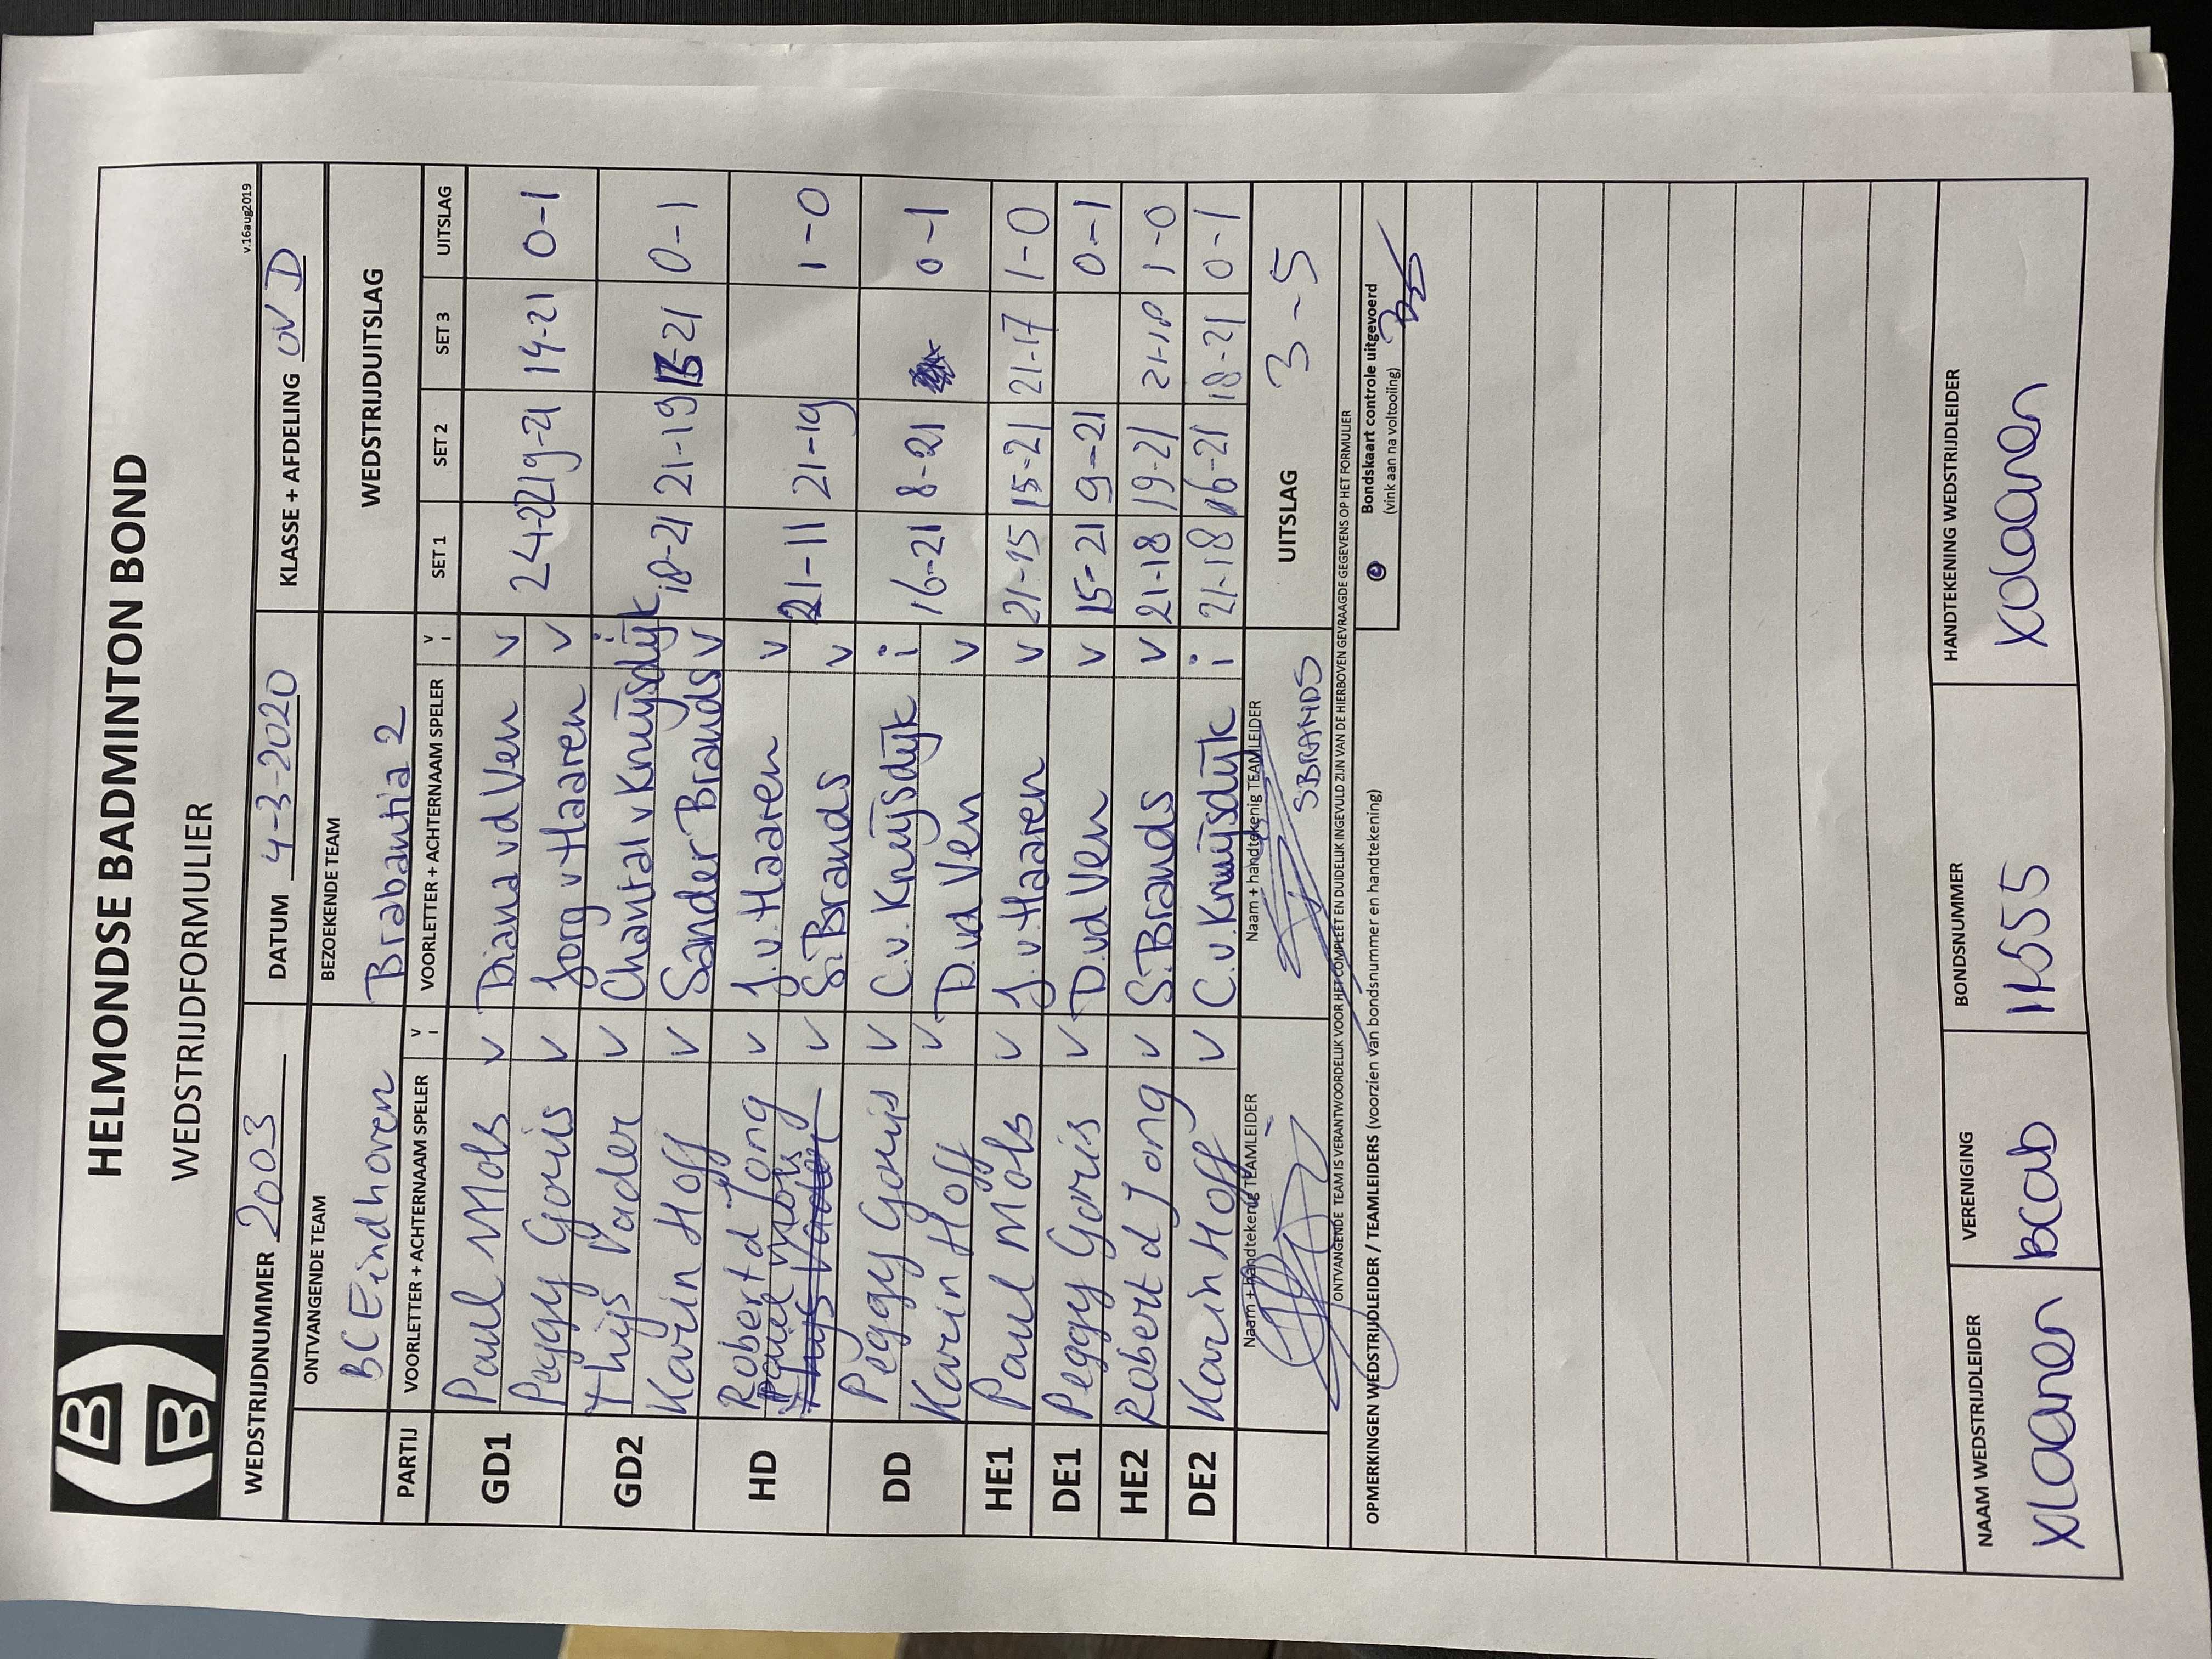 HELMONDSE BADMINTON BOND
WEDSTRIJDFORMULIER
v.16aug2019
WEDSTRIJDNUMMER 2003 DATUM 4-3-2020 KLASSE + AFDELING OV D
ONTVANGENDE TEAM BEZOEKENDE TEAM WEDSTRIJDUITSLAG
BC Eindhoven Brabantia 2
PARTIJ VOORLETTER + ACHTERNAAM SPELER V I VOORLETTER + ACHTERNAAM SPELER V I SET 1 SET 2 SET 3 UITSLAG
GD1 Paul Mols v Diana vd Ven v 24-22 19-21 14-21 0-1
Peggy Goris v Jorg v Haaren v
GD2 Thijs Vader v Chantal v Knuijsdijk i 18-21 21-19 -21 0-1
Karin Hoff v Sander Brands v
HD Robert d Jong v J. v. Haaren v 21-11 21-19 1-0
Paul Mols Thijs Vader v S. Brands v
DD Peggy Goris v C. v. Knuijsdijk i 16-21 8-21 0-1
Karin Hoff v D. vd Ven v
HE1 Paul Mols v J. v. Haaren v 21-15 15-21 21-17 1-0
DE1 Peggy Goris v D. vd Ven v 15-21 9-21 0-1
HE2 Robert d Jong v S. Brands v 21-18 19-21 21-18 1-0
DE2 Karin Hoff v C. v. Knuijsdijk i 21-18 16-21 18-21 0-1
Naam + handtekenig TEAMLEIDER Naam + handtekenig TEAMLEIDER UITSLAG 3-5
S.BRANDS
ONTVANGENDE TEAM IS VERANTWOORDELIJK VOOR HET COMPLEET EN DUIDELIJK INGEVULD ZIJN VAN DE HIERBOVEN GEVRAAGDE GEGEVENS OP HET FORMULIER
OPMERKINGEN WEDSTRIJDLEIDER / TEAMLEIDERS (voorzien van bondsnummer en handtekening)
Bondskaart controle uitgevoerd
(vink aan na voltooiing)
NAAM WEDSTRIJDLEIDER VERENIGING BONDSNUMMER HANDTEKENING WEDSTRIJDLEIDER
XLaanen BCab 11655 XLaanen